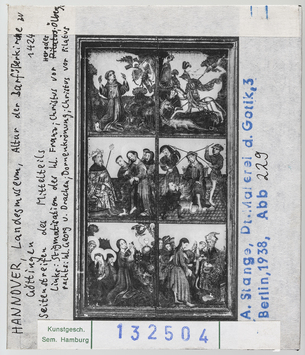 HANNOVER, Landesmuseum, Altar der Barfüßerkirche zu
Göttingen 1424
Seitenstreifen des Mittelteils
links: Stigmatisation des hl. Franz; Christus vor
rechts: hl. Georg u. Drachen; Dornenkrönung; Christus vor Pilatus
A. Stange, Dt. Malerei d. Gotik, 3
Berlin, 1938, Abb 229
Kunstgesch.
Sem. Hamburg
132504